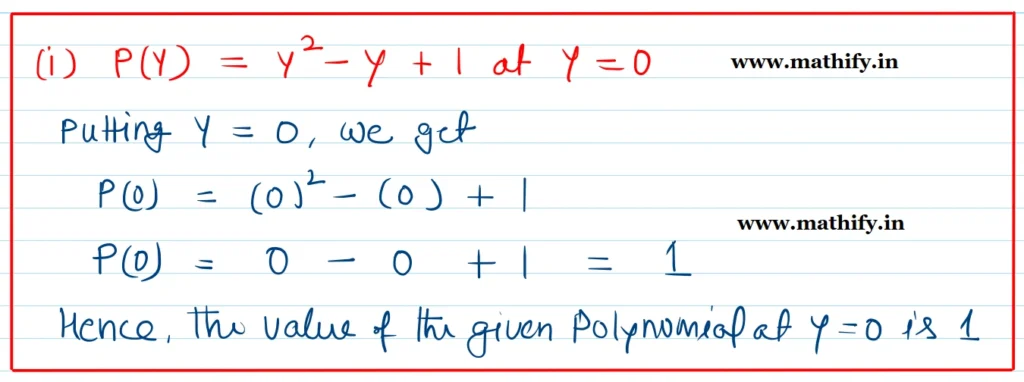 (i) P(Y) = Y² - Y + 1 at Y = 0
www.mathify.in
Putting Y = 0, we get
P(0) = (0)² - (0) + 1
www.mathify.in
P(0) = 0 - 0 + 1 = 1
Hence, the value of the given Polynomial at Y = 0 is 1